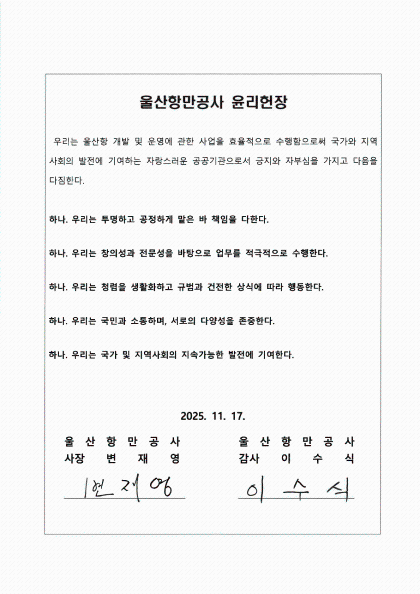 울산항만공사 윤리헌장
우리는 울산항 개발 및 운영에 관한 사업을 효율적으로 수행함으로써 국가와 지역
사회의 발전에 기여하는 자랑스러운 공공기관으로서 긍지와 자부심을 가지고 다음을
다짐한다.
하나. 우리는 투명하고 공정하게 맡은 바 책임을 다한다.
하나. 우리는 창의성과 전문성을 바탕으로 업무를 적극적으로 수행한다.
하나. 우리는 청렴을 생활화하고 규범과 건전한 상식에 따라 행동한다.
하나. 우리는 국민과 소통하며, 서로의 다양성을 존중한다.
하나. 우리는 국가 및 지역사회의 지속가능한 발전에 기여한다.
2025. 11. 17.
울 산 항 만 공 사 울 산 항 만 공 사
사장 변 재 영 감사 이 수 식
변 재 영 이 수 식